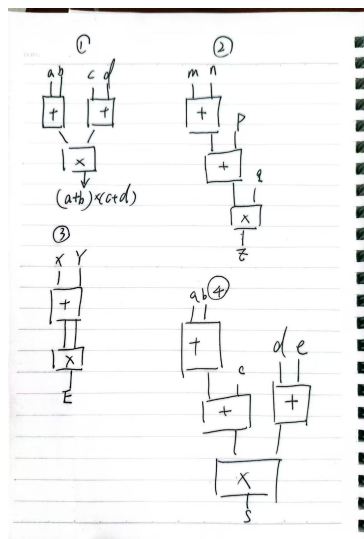 ①
a b c d
+ +
×
(a+b)×(c+d)
②
m n
+
p
+
q
×
z
③
X Y
+
×
E
④
a b
+
c
+
d e
+
×
S